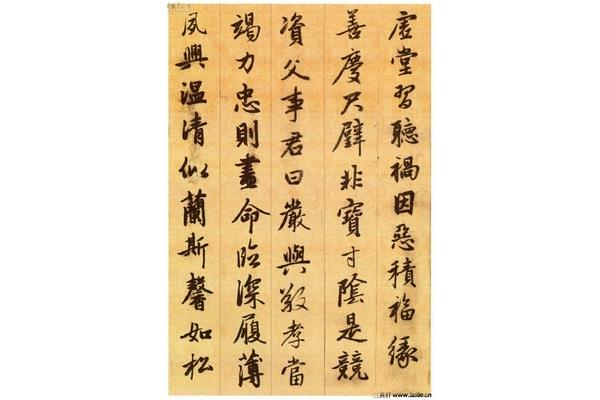 虛堂習聽禍因惡積福緣
善慶尺璧非寶寸陰是競
資父事君曰嚴與敬孝當
竭力忠則盡命臨深履薄
夙興温凊似蘭斯馨如松